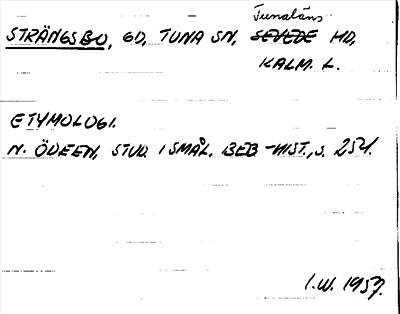 Tunaläns
STRÄNGSBO, GD, TUNA SN, SEVEDE HD,
KALM. L.
ETYMOLOGI.
N. ÖDEEN, STUD. I SMÅL. BEB-HIST., S. 254.
I.W. 1957.